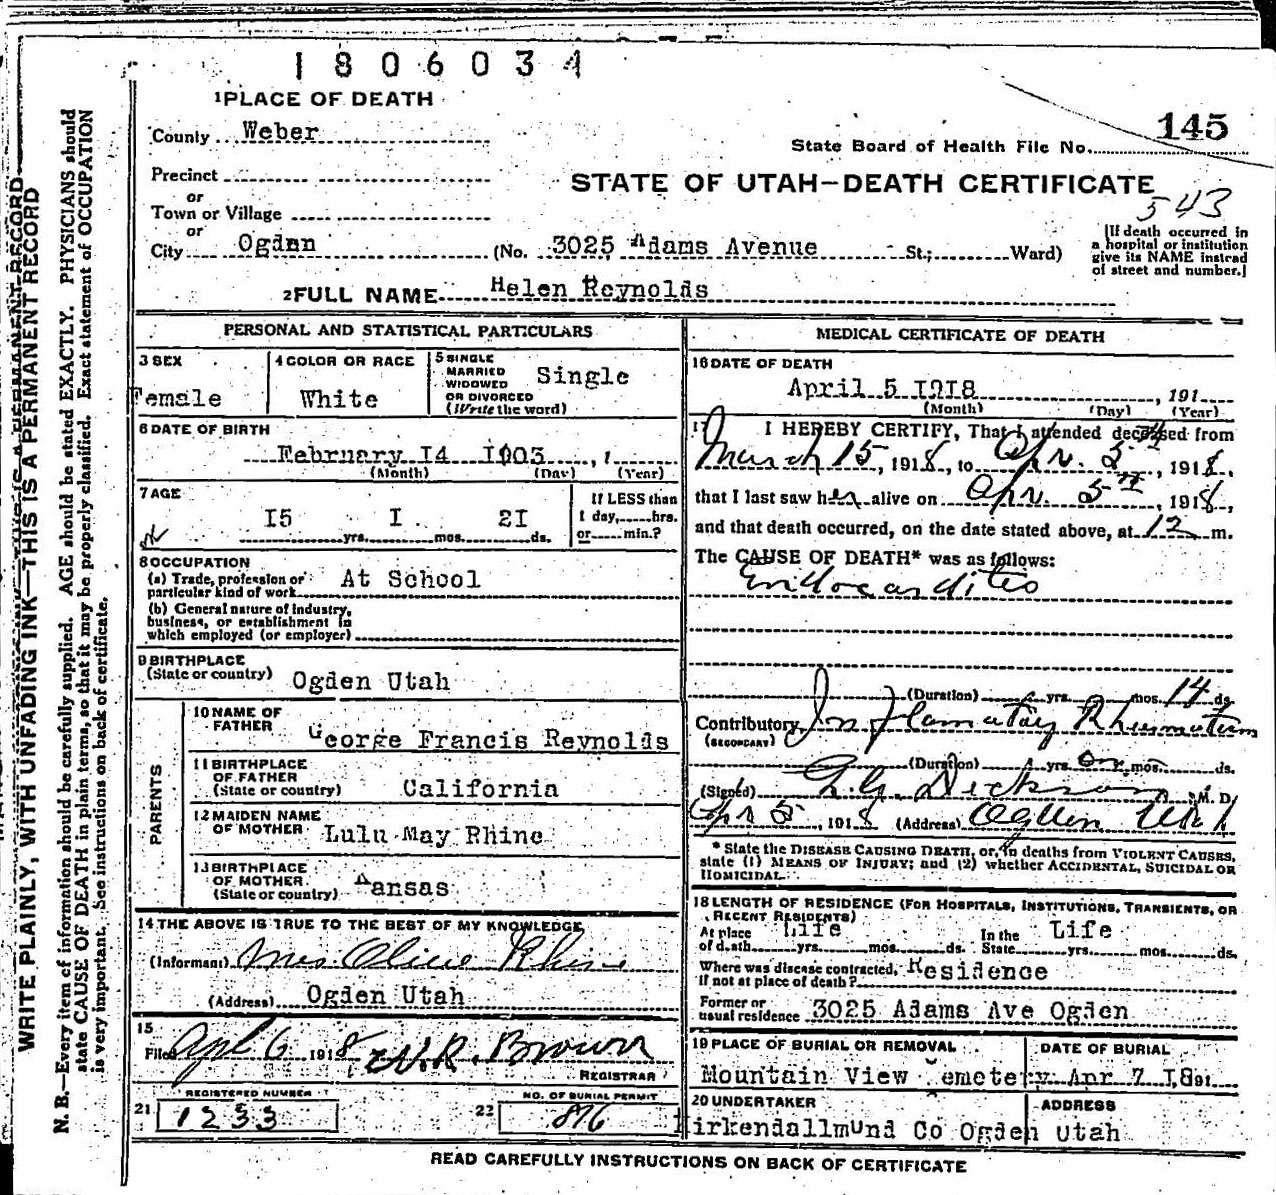 1806034
1 PLACE OF DEATH
County Weber
145
State Board of Health File No.
Precinct
or
STATE OF UTAH—DEATH CERTIFICATE
543
Town or Village
or
City Ogdnn (No. 3025 Adams Avenue St.; Ward)
[If death occurred in
a hospital or institution
give its NAME instead
of street and number.]
2 FULL NAME Helen Reynolds
PERSONAL AND STATISTICAL PARTICULARS
3 SEX
Female
4 COLOR OR RACE
White
5 SINGLE
MARRIED
WIDOWED
OR DIVORCED
(Write the word)
Single
6 DATE OF BIRTH
February I4 I903 , 1
(Month) (Day) (Year)
7 AGE
I5 yrs. I mos. 2I ds.
If LESS than
1 day, hrs.
or min.?
8 OCCUPATION
(a) Trade, profession or
particular kind of work At School
(b) General nature of industry,
business, or establishment in
which employed (or employer)
9 BIRTHPLACE
(State or country) Ogden Utah
PARENTS
10 NAME OF
FATHER George Francis Reynolds
11 BIRTHPLACE
OF FATHER
(State or country) California
12 MAIDEN NAME
OF MOTHER Lulu May Rhine
13 BIRTHPLACE
OF MOTHER
(State or country) Kansas
14 THE ABOVE IS TRUE TO THE BEST OF MY KNOWLEDGE
(Informant) Mrs Alice Rhine
(Address) Ogden Utah
15
Filed Apl 6 1918 W.R. Brown
REGISTRAR
21 REGISTERED NUMBER
1233
22 NO. OF BURIAL PERMIT
876
MEDICAL CERTIFICATE OF DEATH
16 DATE OF DEATH
April 5 I9I8 , 191
(Month) (Day) (Year)
17 I HEREBY CERTIFY, That I attended deceased from
March 15, 1918, to Apr. 5th, 1918,
that I last saw her alive on Apr. 5th, 1918,
and that death occurred, on the date stated above, at 12 m.
The CAUSE OF DEATH* was as follows:
Endocarditis
(Duration) yrs. mos. 14 ds.
Contributory Inflamatory Rhumatism
(SECONDARY)
(Duration) yrs. one mos. ds.
(Signed) Dickson M. D.
Apr 5, 1918 (Address) Ogden Utah
* State the DISEASE CAUSING DEATH, or, in deaths from VIOLENT CAUSES,
state (1) MEANS OF INJURY; and (2) whether ACCIDENTAL, SUICIDAL OR
HOMICIDAL.
18 LENGTH OF RESIDENCE (FOR HOSPITALS, INSTITUTIONS, TRANSIENTS, OR
RECENT RESIDENTS)
At place
of death Life yrs. mos. ds.
In the
State Life yrs. mos. ds.
Where was disease contracted, Residence
if not at place of death?
Former or
usual residence 3025 Adams Ave Ogden
19 PLACE OF BURIAL OR REMOVAL
Mountain View Cemetery
DATE OF BURIAL
Apr 7 I8 191
20 UNDERTAKER
Kirkendallmund Co
ADDRESS
Ogden Utah
READ CAREFULLY INSTRUCTIONS ON BACK OF CERTIFICATE
WRITE PLAINLY, WITH UNFADING INK—THIS IS A PERMANENT RECORD
N. B.—Every item of information should be carefully supplied. AGE should be stated EXACTLY. PHYSICIANS should
state CAUSE OF DEATH in plain terms, so that it may be properly classified. Exact statement of OCCUPATION
is very important. See instructions on back of certificate.